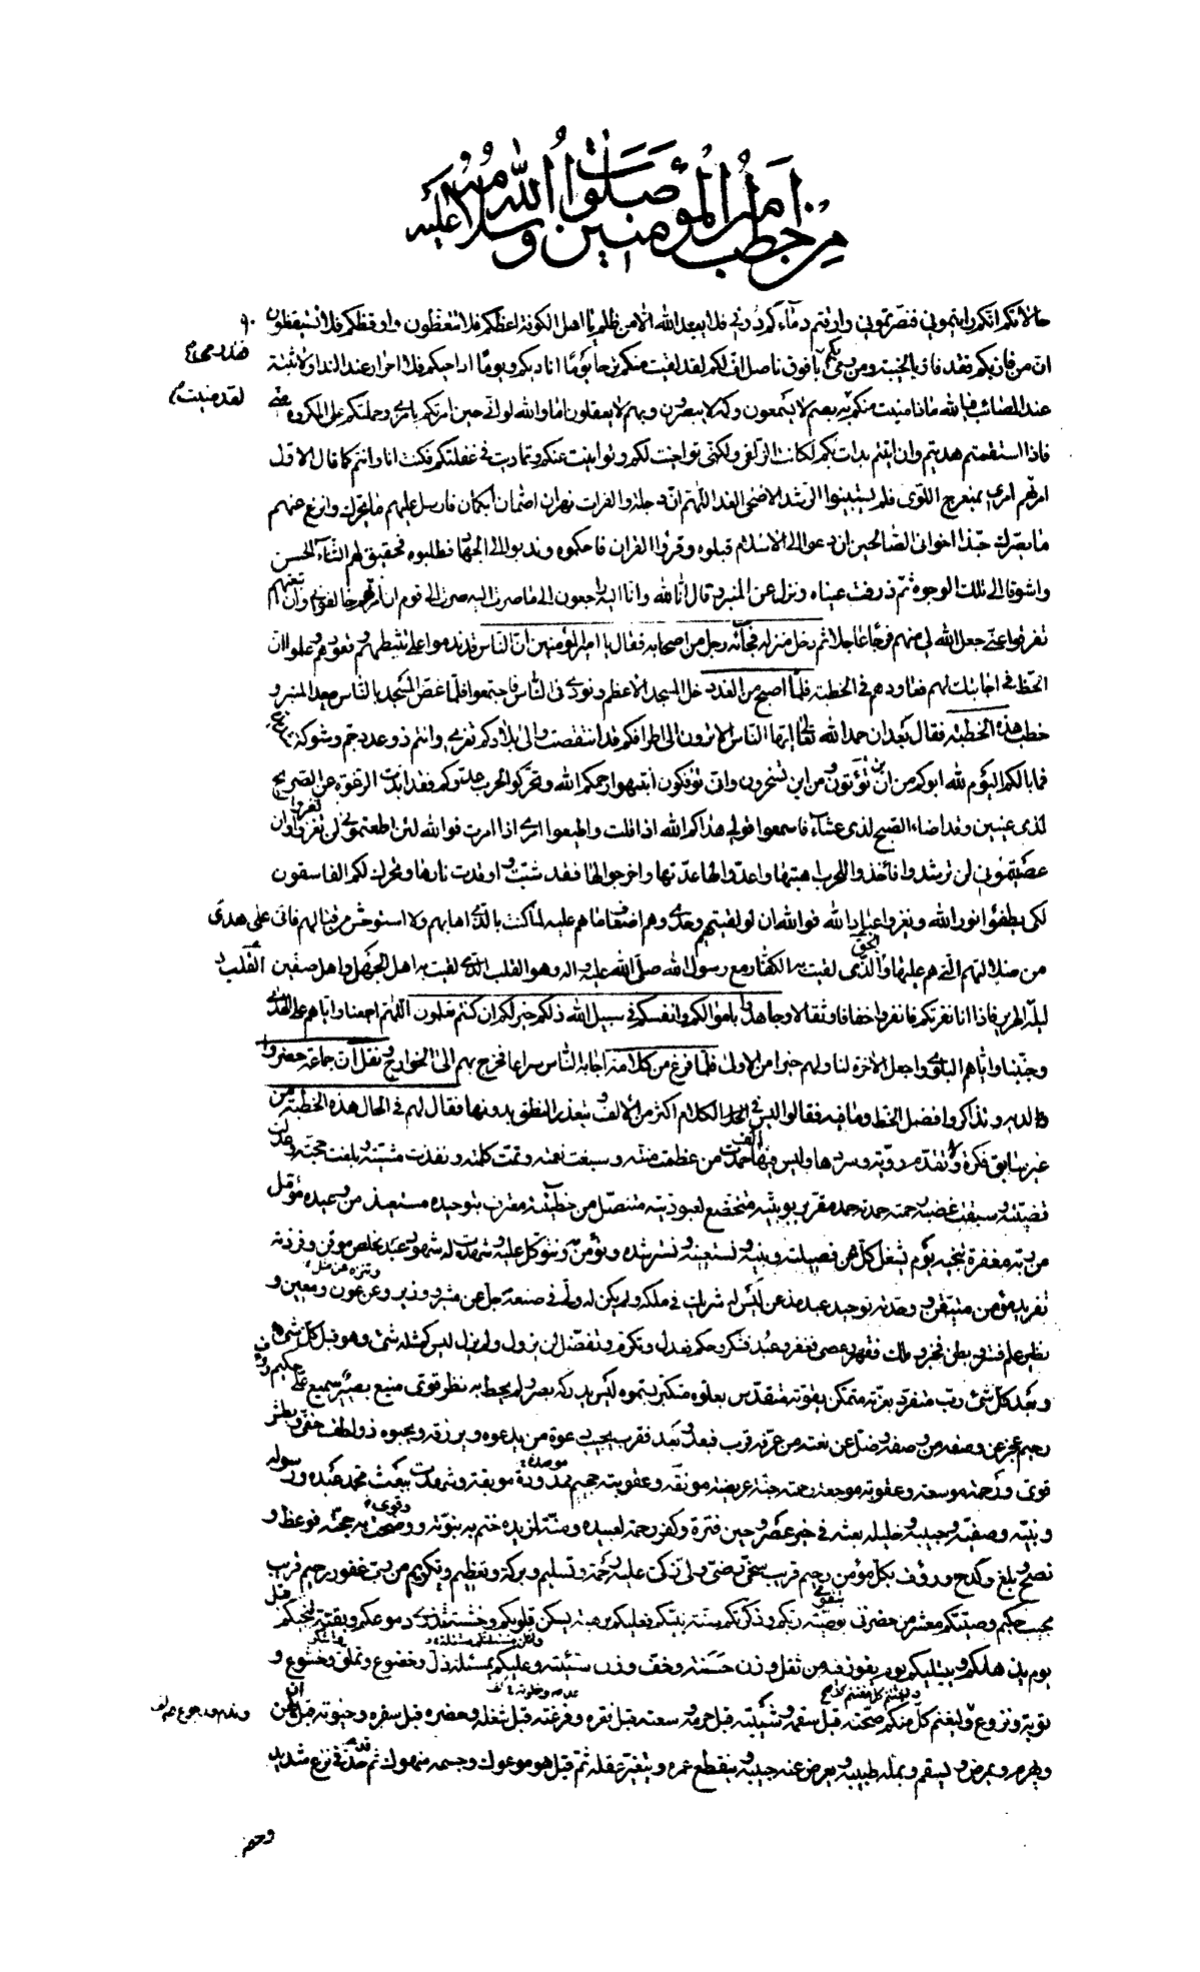 من خطب امير المؤمنين صلوات الله وسلامه عليه
انكم رايتموني فنصرتموني وارقتم دماءكم دوني فلا يبعد الله الا من ظلم يا اهل الكوفة اعظكم فلا تتعظون واوقظكم فلا تستيقظون
ان من فاز بكم فقد فاز بالخيبة ومن رمى بكم بافوق ناصل اف لكم لقد لقيت منكم برحا يوما اناديكم ويوما اناجيكم فلا احرار عند النداء ولا ثقة
لقد منيت
عند المصائب فيالله ماذا منيت منكم به بصم لا يسمعون وكمه لا يبصرون وبهم لا يعقلون اما والله لو اني حين امرتكم بامري وحملتكم على المكروه
فاذا استقمتم هديتم وان ابيتم بدات بكم لكانت الزلفى ولكني تواخيت لكم وتوانيت عنكم وتماديت في غفلتكم فكنت انا وانتم كما قال الاول
امرتهم امري بمنعرج اللوى فلم يستبينوا الرشد الا ضحى الغد اللهم ان دجلة والفرات نهران اصمان ابكمان فارسل عليهم ماء بحرك وانزع عنهم
ماء نصرك حبذا اخواني الصالحين ان دعوا الى الاسلام قبلوه وقرؤا القران فاحكموه وندبوا الى الجهاد فطلبوه فحقيق لهم الثناء الحسن
واشوقا الى تلك الوجوه ثم ذرفت عيناه ونزل عن المنبر وقال انا لله وانا اليه راجعون الى ما صرت اليه صرت الى قوم ان امرتهم خالفوني وان اتبعتهم
تفرقوا عني جعل الله لي منهم فرجا عاجلا ثم دخل منزله فجائه رجل من اصحابه فقال يا امير المؤمنين ان الناس قد ندموا على تثبطهم وقعودهم وعلموا ان
الحظ في اجابتك لهم فعاودهم في الخطبة فلما اصبح من الغد دخل المسجد الاعظم ونودي في الناس فاجتمعوا فلما غص المسجد بالناس صعد المنبر و
خطب هذه الخطبة فقال بعد ان حمد الله تعالى ايها الناس الا ترون الى اطرافكم قد انتقصت والى بلادكم تغزى وانتم ذو عدد جم وشوكة
فما بالكم اليوم لله ابوكم من اين تؤتون ومن اين تسخرون وانى تؤفكون انتبهوا رحمكم الله وتحركوا لحرب عدوكم فقد ابدت الرغوة عن الصريح
لذي عينين وقد اضاء الصبح لذي عشاء فاسمعوا قولي هداكم الله اذا قلت واطيعوا امري اذا امرت فوالله لئن اطعتموني لن تغووا وان
عصيتموني لن ترشدوا فأخذوا للحرب اهبتها واعدوا لها عدتها واخرجوا لها فقد شبت واوقدت نارها وتحرك لكم الفاسقون
لكي يطفؤا نور الله ويغزوا عباد الله فوالله ان لو لقيتهم وحدي وهم اضعاف ما هم عليه لما كنت بالذي اهابهم ولا استوحش من قتالهم فاني على هدى
من ضلالتهم التي هم عليها والحق الذي لقيت به الكفار مع رسول الله صلى الله عليه واله وهو القلب الذي لقيت به اهل الجمل واهل صفين
ليلة الهرير فاذا انا نفرتكم فانفروا خفافا وثقالا وجاهدوا باموالكم وانفسكم في سبيل الله ذلكم خير لكم ان كنتم تعلمون اللهم اجمعنا واياهم على الهدى
وجنبنا واياهم البلوى واجعل الاخرة لنا ولهم خيرا من الاولى فلما فرغ من كلامه اجابه الناس سراعا فخرج بهم الى الخوارج ونقل ان جماعة حضروا
لديه وتذاكروا فضل الخط وما فيه فقالوا ليس في الكلام اكثر من الالف ويتعذر النطق بدونها فقال لهم في الحال هذه الخطبة من
غير سابق فكرة ولا تقدم روية وسردها وليس فيها الف حمدت من عظمت منته وسبغت نعمته وتمت كلمته ونفذت مشيته وبلغت حجته وعدلت
قضيته وسبقت غضبه رحمته حمدته حمد مقر بربوبيته متخضع لعبوديته متنصل من خطيئته معترف بتوحيده مستعيذ من وعيده مؤمل
من ربه مغفرة تنجيه يوم يشغل كل عن فصيلته وبنيه ونستعينه ونسترشده ونؤمن به ونتوكل عليه وشهدت له شهود عبد مخلص موقن وفردته
تفريد مؤمن متيقن ووحدته توحيد عبد مذعن ليس له شريك في ملكه ولم يكن له ولي في صنعه جل عن مشير ووزير وعن عون ومعين و
نظير علم فستر وبطن فخبر وملك فقهر وعصي فغفر وعبد فشكر وحكم فعدل وتكرم وتفضل لن يزول ولم يزل ليس كمثله شئ وهو قبل كل شئ
وبعد كل شئ رب متفرد بعزته متمكن بقوته متقدس بعلوه متكبر بسموه ليس يدركه بصر ولم يحط به نظر قوي منيع بصير سميع علي حكيم رؤف
رحيم عجز عن وصفه من وصفه وضل عن نعته من عرفه قرب فبعد وبعد فقرب يجيب دعوة من يدعوه ويرزقه ويحبوه ذو لطف خفي وبطش
قوي ورحمة موسعة وعقوبة موجعة رحمته جنة عريضة مونقة وعقوبته جحيم ممدودة موبقة وشهدت ببعث محمد عبده ورسوله
ونبيه وصفيه وحبيبه وخليله بعثه في خير عصر وحين فترة وكفر رحمة لعبيده ومنة لمزيده ختم به نبوته ووضحت به حجته فوعظ و
نصح وبلغ وكدح ورؤف بكل مؤمن رحيم قريب سخي رضي ولي زكي عليه رحمة وتسليم وبركة وتعظيم وتكريم من رب غفور رحيم قريب
مجيب حكيم وصيتكم معشر من حضرني بوصية ربكم وذكرتكم بسنة نبيكم فعليكم برهبة تسكن قلوبكم وخشية تذري دموعكم وتقية تنجيكم قبل
يوم يذهلكم ويبتليكم يوم يفوز فيه من ثقل وزن حسنته وخف وزن سيئته وعليكم بمسئلة ذل وخضوع وتملق وخشوع و
توبة ونزوع وليغتنم كل منكم صحته قبل سقمه وشبيبته قبل هرمه وسعته قبل فقره وفرغته قبل شغله وحضره قبل سفره وحيوته قبل ان
يهرم ويمرض ويسقم ويمله طبيبه ويعرض عنه حبيبه وينقطع عمره ويتغير عقله ثم قيل هو موعوك وجسمه منهوك ثم جد في نزع شديد